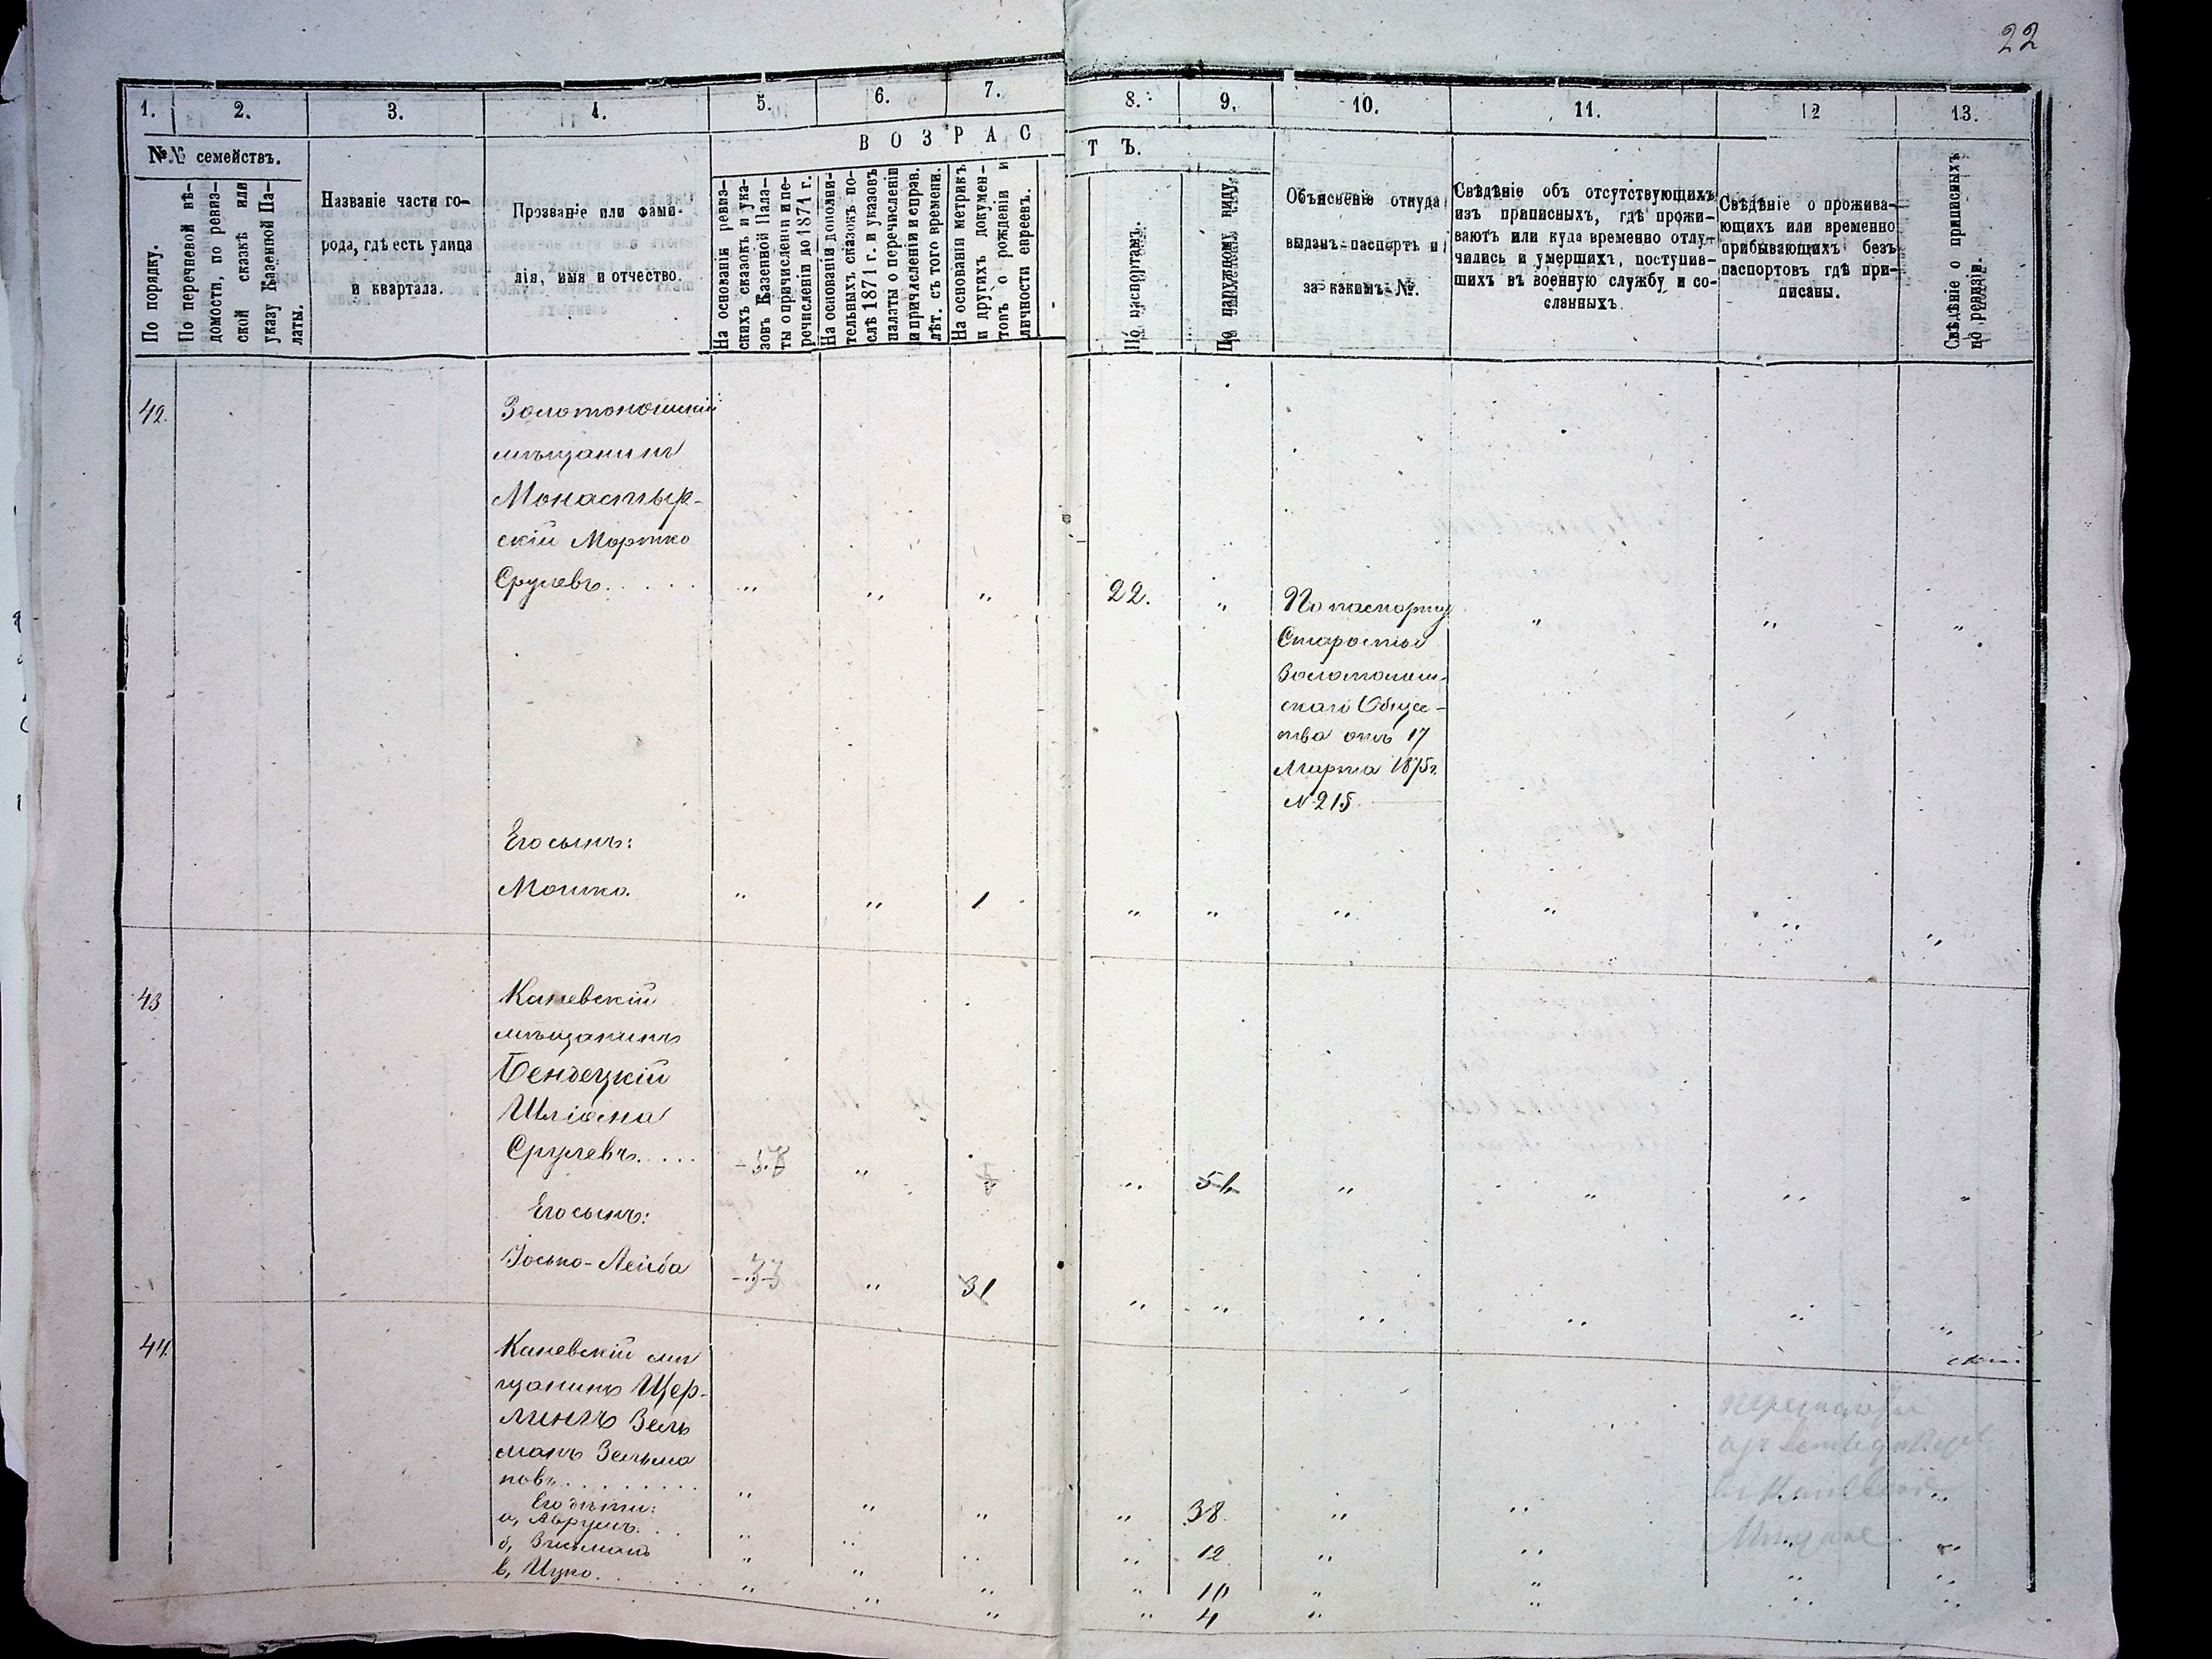 22
1. 2. 3. 4. 5. 6. 7. 8. 9. 10. 11. 12 13.
№№ семействъ.
ВОЗРАСТЪ.
По порядку.
По перечневой вѣ-
домости, по ревиз-
ской сказкѣ или
указу Казенной Па-
латы.
Названіе части го-
рода, гдѣ есть улица
и квартала.
Прозваніе или фами-
лія, имя и отчество.
На основаніи ревиз-
скихъ сказокъ и ука-
зовъ Казенной Пала-
ты о причисленіи и пе-
речисленіи до 1871 г.
На основаніи дополни-
тельныхъ сказокъ по-
слѣ 1871 г. и указовъ
палаты о перечисленіи
и причисленіи и справ.
лѣт. съ того времени.
На основаніи метрикъ
и другихъ докумен-
товъ о рожденіи и
личности евреевъ.
По паспортамъ.
По наружному виду.
Объясненіе откуда
выданъ паспортъ и
за какимъ №.
Свѣдѣніе объ отсутствующихъ
изъ приписныхъ, гдѣ прожи-
ваютъ или куда временно отлу-
чились и умершихъ, поступив-
шихъ въ военную службу и со-
сланныхъ.
Свѣдѣніе о прожива-
ющихъ или временно
прибывающихъ безъ
паспортовъ гдѣ при-
писаны.
Свѣдѣніе о приписныхъ
по ревизіи.
42. Золотоношскій
мѣщанинъ
Монастыр-
скій Мортко
Срулевъ..... „ „ „ 22. „ По паспорту „ „ „
Старосты
Золотонош-
скаго Обще-
тва отъ 17
Марта 1875 г.
№ 215
Его сынъ:
Мошко. „ „ 1 „ „ „ „ „ „
43 Каневскій
мѣщанинъ
Бендецкій
Шліома
Срулевъ.... „ „ 51 „ „ „ „
Его сынъ:
Іосько-Лейба 33 „ 31 „ „ „ „ „ „
44. Каневскій мѣ
щанинъ Щер-
линъ Зель
манъ Зельма
новъ........ „ „ „ „ 38. „ „ „ „
Его дѣти:
а, Аврумъ... „ „ „ „ 12 „ „ „ „
б, Зисьманъ „ „ „ „ 10 „ „ „ „
в, Ицко...... „ „ „ „ 4 „ „ „ „